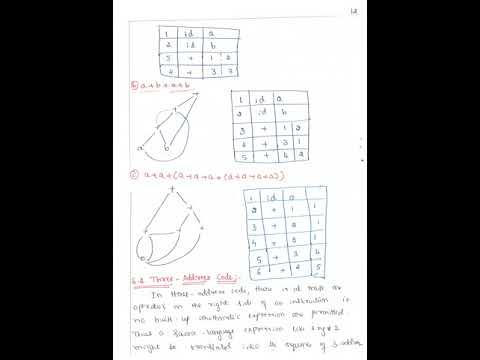 12
1 id a
2 id b
3 + 1 2
4 + 3 3
b) a+b+a+b
+
+
+
a b
1 id a
2 id b
3 + 1 2
4 + 3 1
5 + 4 2
c) a+a+(a+a+a+(a+a+a+a))
+
+
+
+
1 id a
2 + 1 1
3 + 2 1
4 + 3 1
5 + 3 4
6 + 2 5
6.2 Three-Address Code:-
In three-address code, there is at most one
operator on the right side of an instruction ie
no built-up arithmetic expression are permitted.
Thus a source-language expression like x+y*z
might be translated into the sequence of 3-address